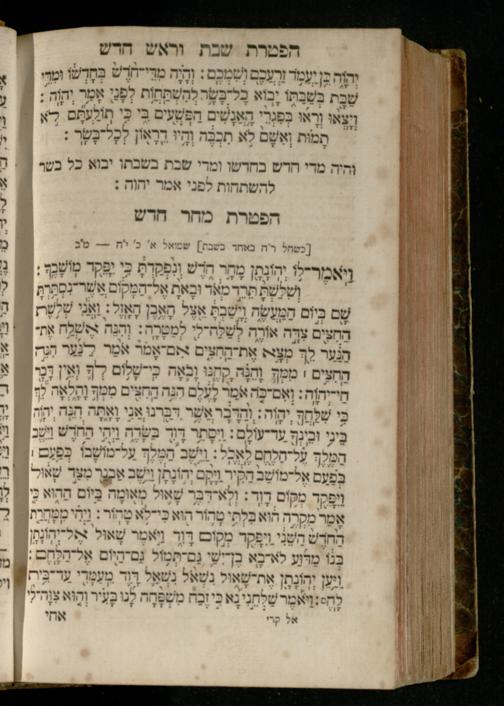 הפטרת שבת וראש חדש
יְהֹוָה כֵּן יַעֲמֹד זַרְעֲכֶם וְשִׁמְכֶם : וְהָיָה מִדֵּי־חֹדֶשׁ בְּחָדְשׁוֹ וּמִדֵּי
שַׁבָּת בְּשַׁבַּתּוֹ יָבוֹא כָל־בָּשָׂר לְהִשְׁתַּחֲוֹת לְפָנַי אָמַר יְהֹוָה :
וְיָצְאוּ וְרָאוּ בְּפִגְרֵי הָאֲנָשִׁים הַפֹּשְׁעִים בִּי כִּי תוֹלַעְתָּם לֹא
תָמוּת וְאִשָּׁם לֹא תִכְבֶּה וְהָיוּ דֵרָאוֹן לְכָל־בָּשָׂר :
והיה מדי חדש בחדשו ומדי שבת בשבתו יבוא כל בשר
להשתחות לפני אמר יהוה :
הפטרת מחר חדש
[כשחל ר״ח באחד בשבת] שמואל א׳ כ׳ י״ח — מ״ב
וַיֹּאמֶר־לוֹ יְהוֹנָתָן מָחָר חֹדֶשׁ וְנִפְקַדְתָּ כִּי יִפָּקֵד מוֹשָׁבֶךָ :
וְשִׁלַּשְׁתָּ תֵּרֵד מְאֹד וּבָאתָ אֶל־הַמָּקוֹם אֲשֶׁר־נִסְתַּרְתָּ
שָּׁם בְּיוֹם הַמַּעֲשֶׂה וְיָשַׁבְתָּ אֵצֶל הָאֶבֶן הָאָזֶל : וַאֲנִי שְׁלֹשֶׁת
הַחִצִּים צִדָּה אוֹרֶה לְשַׁלַּח־לִי לְמַטָּרָה : וְהִנֵּה אֶשְׁלַח אֶת־
הַנַּעַר לֵךְ מְצָא אֶת־הַחִצִּים אִם־אָמֹר אֹמַר לַנַּעַר הִנֵּה
הַחִצִּים ׀ מִמְּךָ וָהֵנָּה קָחֶנּוּ וָבֹאָה כִּי־שָׁלוֹם לְךָ וְאֵין דָּבָר
חַי־יְהֹוָה : וְאִם־כֹּה אֹמַר לָעֶלֶם הִנֵּה הַחִצִּים מִמְּךָ וָהָלְאָה לֵךְ
כִּי שִׁלַּחֲךָ יְהֹוָה : וְהַדָּבָר אֲשֶׁר דִּבַּרְנוּ אֲנִי וָאָתָּה הִנֵּה יְהֹוָה
בֵּינִי וּבֵינְךָ עַד־עוֹלָם : וַיִּסָּתֵר דָּוִד בַּשָּׂדֶה וַיְהִי הַחֹדֶשׁ וַיֵּשֶׁב
הַמֶּלֶךְ עַל־הַלֶּחֶם לֶאֱכֹל : וַיֵּשֶׁב הַמֶּלֶךְ עַל־מוֹשָׁבוֹ כְּפַעַם ׀
בְּפַעַם אֶל־מוֹשַׁב הַקִּיר וַיָּקָם יְהוֹנָתָן וַיֵּשֶׁב אַבְנֵר מִצַּד שָׁאוּל
וַיִּפָּקֵד מְקוֹם דָּוִד : וְלֹא־דִבֶּר שָׁאוּל מְאוּמָה בַּיּוֹם הַהוּא כִּי
אָמַר מִקְרֶה הוּא בִּלְתִּי טָהוֹר הוּא כִּי־לֹא טָהוֹר : וַיְהִי מִמָּחֳרַת
הַחֹדֶשׁ הַשֵּׁנִי וַיִּפָּקֵד מְקוֹם דָּוִד וַיֹּאמֶר שָׁאוּל אֶל־יְהוֹנָתָן
בְּנוֹ מַדּוּעַ לֹא־בָא בֶן־יִשַׁי גַּם־תְּמוֹל גַּם־הַיּוֹם אֶל־הַלָּחֶם :
וַיַּעַן יְהוֹנָתָן אֶת־שָׁאוּל נִשְׁאֹל נִשְׁאַל דָּוִד מֵעִמָּדִי עַד־בֵּית
לָחֶם : וַיֹּאמֶר שַׁלְּחֵנִי נָא כִּי זֶבַח מִשְׁפָּחָה לָנוּ בָּעִיר וְהוּא צִוָּה־לִי
אל קרי
אחי